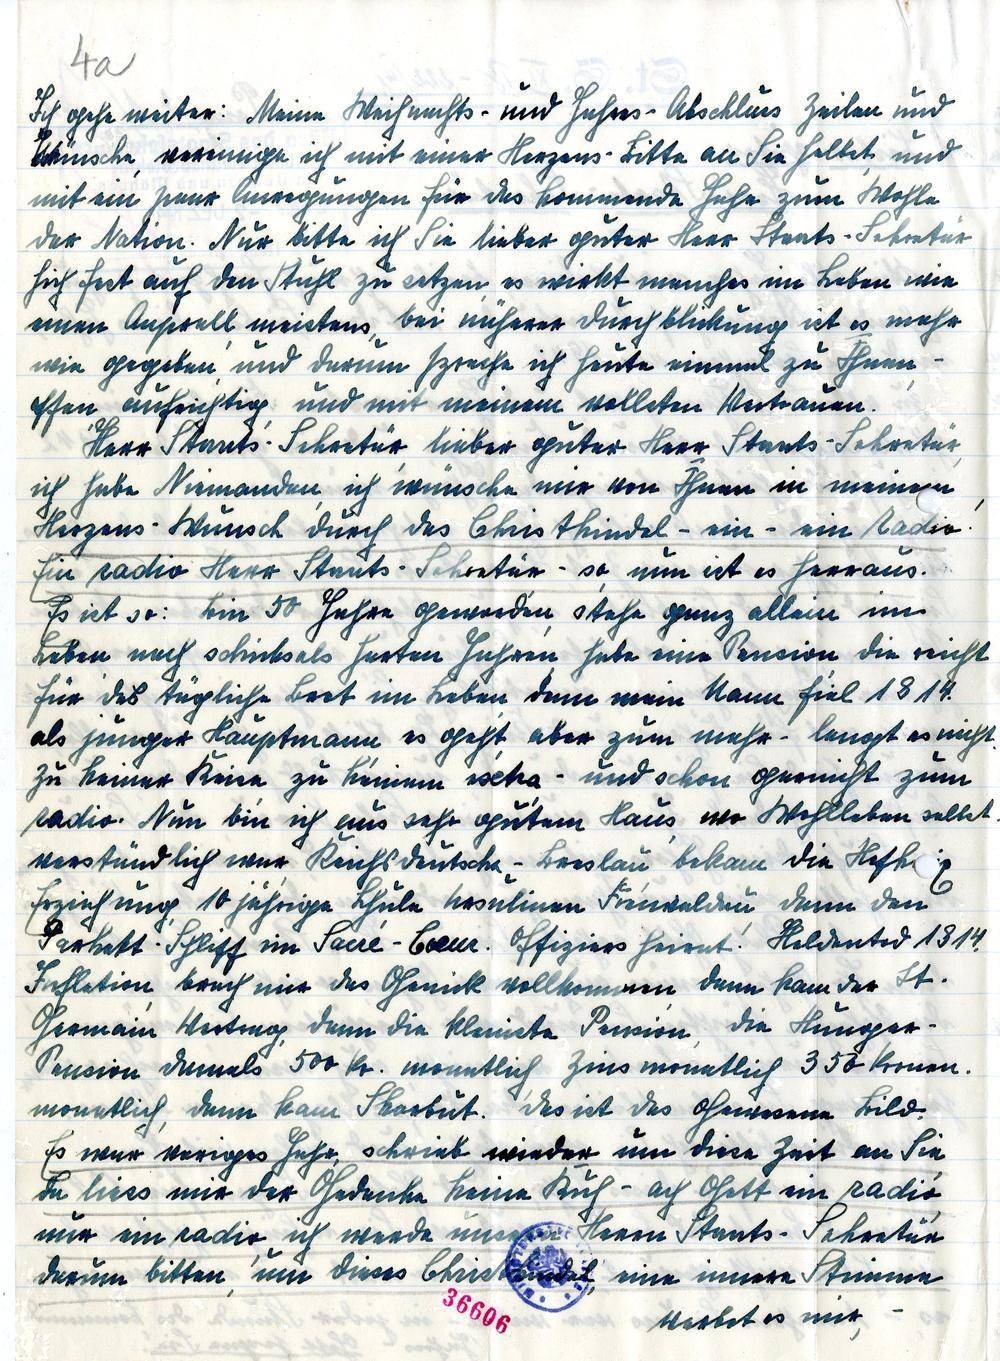 4a
Ich gehe weiter: Meine Weihnachts- und Jahres-Abschluss Zeilen und
Wünsche, vereinige ich mit einer Herzens-Bitte an Sie selbst, und
mit ein paar Anregungen für das kommende Jahr zum Wohle
der Nation. Nur bitte ich Sie lieber guter Herr Staats-Sekretär
sich fest auf den Stuhl zu setzen, es wirkt manches im Leben wie
einen Anprall, meistens, bei näherer Durchblickung ist es mehr
wie gegeben, und darum spreche ich heute einmal zu Ihnen, -
offen, aufrichtig, und mit meinem vollsten Vertrauen.
Herr Staats-Sekretär, lieber guter Herr Staats-Sekretär,
ich habe Niemanden, ich wünsche mir von Ihnen in meinem
Herzens-Wunsch durch das Christkindel - ein - ein radio.
Ein radio Herr Staats-Sekretär - so, nun ist es herraus.
Es ist so: bin 50 Jahre geworden, stehe ganz allein im
Leben nach schicksals harten Jahren, habe eine Pension die reicht
für das tägliche Brot im Leben, denn mein Mann fiel 1914.
als junger Hauptmann es geht aber zum mehr - langt es nicht.
zu keiner Reise zu keinem extra - und schon garnicht zum
radio. Nun bin ich aus sehr gutem Haus, wo Wohlleben selbst.
verständlich war, Reichsdeutsche - Breslau bekam die
Erziehung, 10 jährige Schule Ursulinen Freiwaldau dann den
Parkett-Schliff im Sacré-Coeur. Offiziers heirat! Heldentod 1914.
Inflation, brach mir das Genick vollkommen dann kam der St.
Germain Vertrag, dann die kleinste Pension, die Hunger-
Pension damals 500 kr. monatlich Zins monatlich 350 Kronen.
monatlich, dann kam Skorbut. das ist das gewesene Bild.
Es war voriges Jahr, schrieb wieder um diese Zeit an Sie
Da liess mir der Gedanke keine Ruh - ach Gott ein radio
nur ein radio ich werde unseren Herrn Staats-Sekretär
darum bitten, um dieses Christkindel, eine innere Stimme
verbot es mir, -
36606